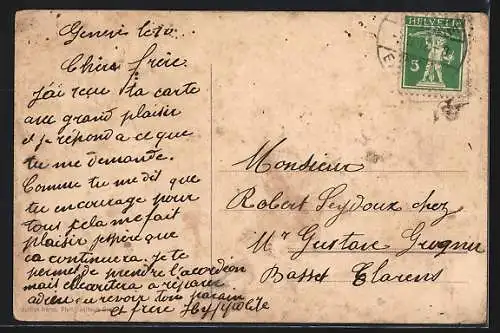 Chers frère.
J'ai reçu ta carte
avec grand plaisir
et je répond a ce que
tu me demande.
Comme tu me dit que
tu en courage pour
tous cela me fait
plaisir j'espère que
ca continuera. je te
permet de prendre l'acordeon
mais elle
adieu au revoir ton parain
et frère
HELVETIA
5
Monsieur
Robert Seydoux chez
Mr Gustave
Basset Clarens